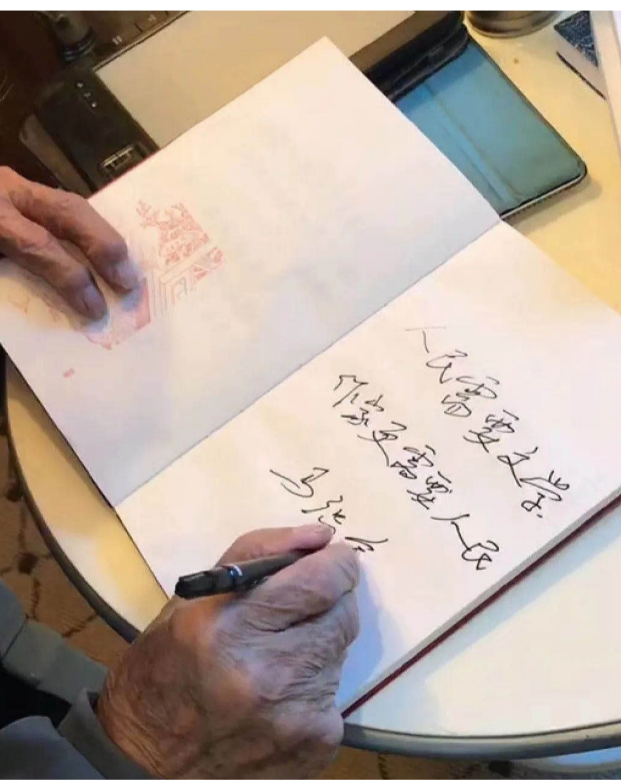 人民需要文学
作家更需要人民
马识途